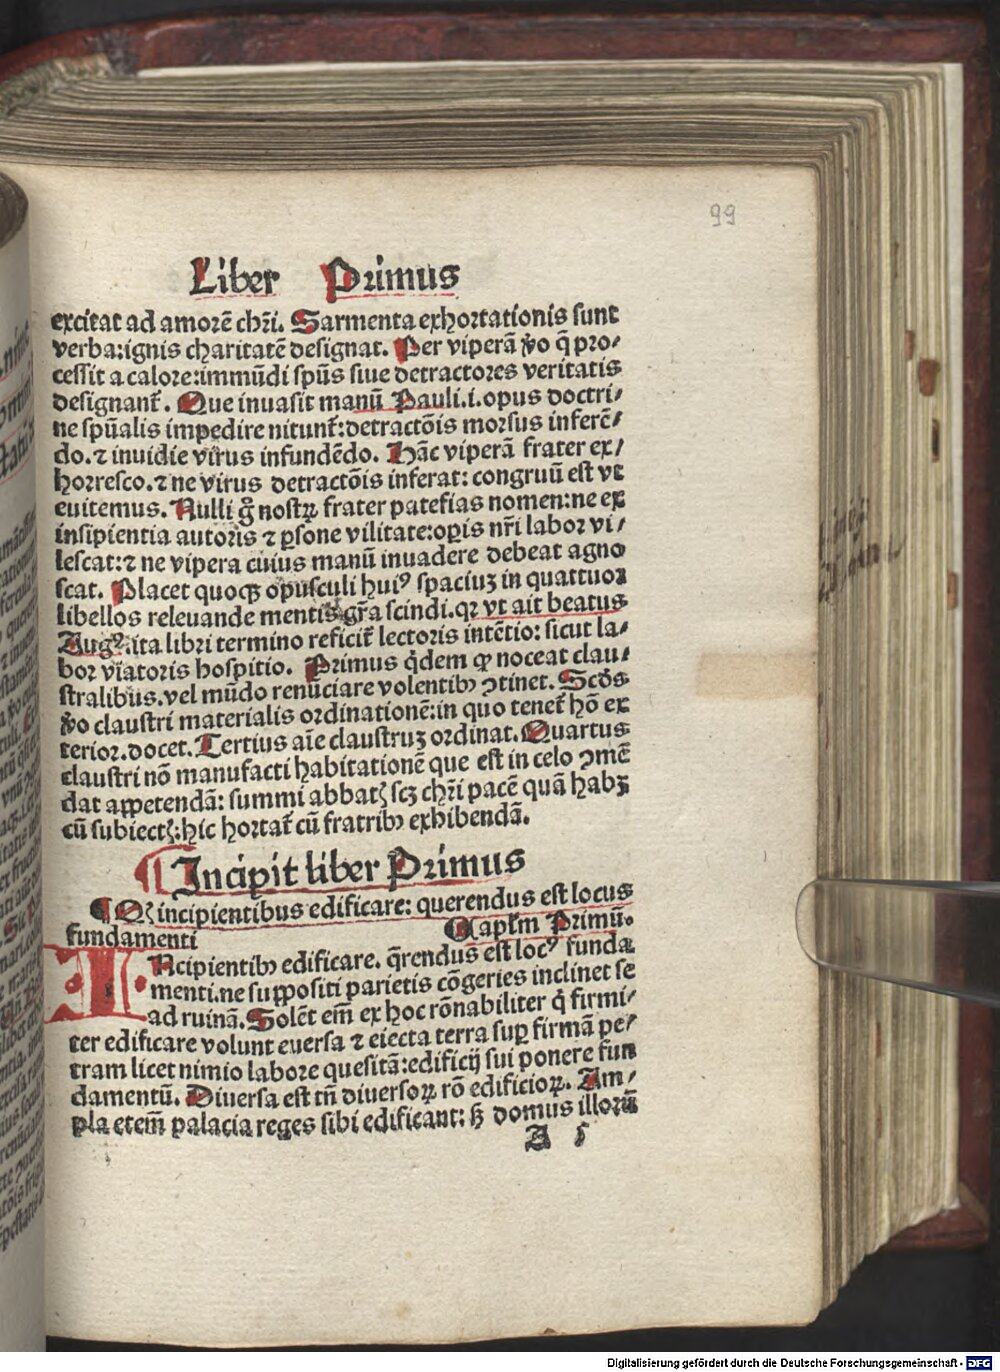 99
Liber Primus
excitat ad amorē chr̄i. Sarmenta exhortationis sunt
verba: ignis charitatē designat. Per viperā v̄o q̄ pro⸗
cessit a calore: immūdi spūs siue detractores veritatis
designant̄. Que inuasit manū Pauli .i. opus doctri⸗
ne spūalis impedire nitunt̄: detractōis morsus inferē⸗
do. ⁊ inuidie virus infundēdo. Hāc viperā frater ex⸗
horresco. ⁊ ne virus detractōis inferat: congruū est vt
euitemus. Nulli g̃ nostrꝝ frater patefias nomen: ne ex
insipientia autoris ⁊ ꝑsone vilitate: oꝑis nr̄i labor vi⸗
lescat: ⁊ ne vipera cuius manū inuadere debeat agno
scat. Placet quoqꝫ opusculi huiꝰ spaciuꝫ in quattuor
libellos releuande mentis gr̄a scindi. qꝛ vt ait beatus
Augꝰ. ita libri termino reficit̄ lectoris intētio: sicut la⸗
bor viatoris hospitio. Primus q̇dem ꝙ noceat clau⸗
stralibus. vel mūdo renūciare volentibꝰ ꝯtinet. Scd̄s
v̄o claustri materialis ordinationē: in quo tenet̄ hō ex
terior. docet. Tertius aīe claustruꝫ ordinat. Quartus
claustri nō manufacti habitationē que est in celo ꝯmē
dat appetendā: summi abbatꝭ scꝫ chr̄i pacē quā habꝫ
cū subiectꝭ: hic hortat̄ cū fratribꝰ exhibendā.
¶ Incipit liber Primus
¶ Qꝭ incipientibus edificare: querendus est locus
fundamenti Capl̄m Primū.
INcipientibꝰ edificare. q̄rendus est locꝰ funda
menti. ne suppositi parietis cōgeries inclinet se
ad ruinā. Solēt em̄ ex hoc rōnabiliter q̇ firmi⸗
ter edificare volunt euersa ⁊ eiecta terra suꝑ firmā pe⸗
tram licet nimio labore quesitā: edificij sui ponere fun
damentū. Diuersa est tn̄ diuersoꝝ rō edificioꝝ. Am⸗
pla etem̄ palacia reges sibi edificant: sꝫ domus illorū
A 5
Digitalisierung gefördert durch die Deutsche Forschungsgemeinschaft - DFG